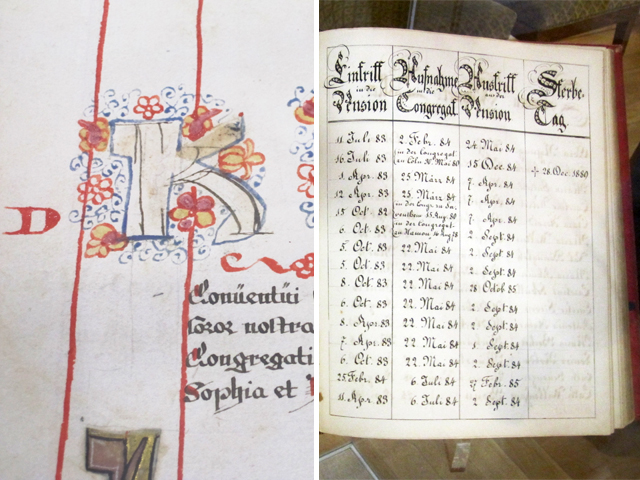 D
K
Conuentui
Soror nostra
Congregati
Sophia et
Eintritt in die Pension
Aufnahme in die Congregat.
Austritt aus der Pension
Sterbe-Tag
11 Juli 83 2. Febr. 84 24 Mai 84
in der Congregat.
16 Juli 83 in Cöln 30 Mai 80 15 Dec. 84 28 Dec. 1880
1 Apr. 83 25 März 84 7. Apr. 84
12 Apr. 83 25. März 84 7. Apr. 84
15 Oct. 82 7. Apr. 84
in der Congregat.
6 Oct. 83 2 Sept 84
5 Oct. 83 22. Mai 84 2. Sept 84
5. Oct. 83 22. Mai 84 2. Sept 84
8 Oct. 83 22. Mai 84 28 Octob 85
6. Oct. 83 22. Mai 84 2. Sept 84
8. Apr. 83 22. Mai 84 2. Sept 84
7 Apr. 83 22 Mai 84 1. Sept 84
6. Oct 83 22. Mai 84 2. Sept 84
25 Febr. 84 6 Juli 84 27 Febr. 85
11. Apr. 83 6. Juli 84 2 Sept 84